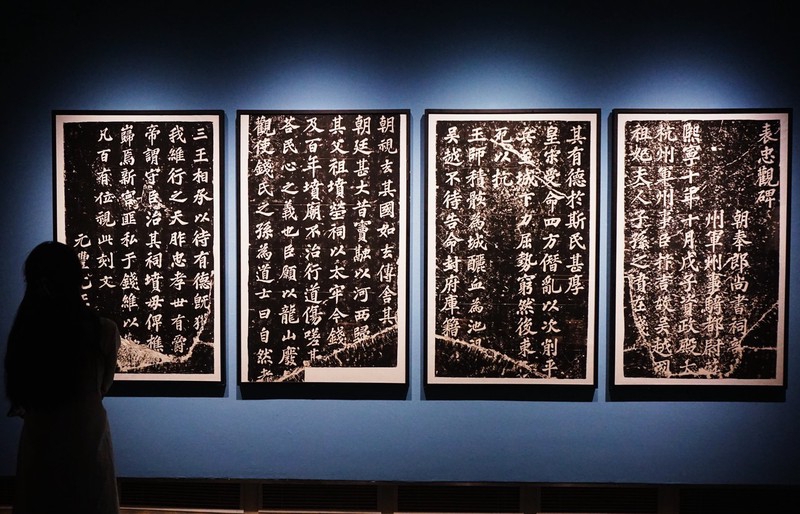 表忠觀碑
朝奉郎尚書祠部
州軍州事騎都尉
熙寧十年十月戊子資政殿大
杭州軍州事臣抃言故吳越國
祖妣夫人子孫之墳在
其有德於斯民甚厚
皇宋受命四方僭亂以次削平
兵至城下力屈勢窮然後束
死以抗
王師積骸為城釃血為池竭
吳越不待告命封府庫籍
朝視去其國如去傳舍其
朝廷甚大昔竇融以河西歸
其父祖墳塋祠以太牢今錢
及百年墳廟不治行道傷嗟甚
荅民心之義也臣願以龍山廢
觀使錢氏之孫為道士曰自然者
三王相承以待有德既獲
我維行之天胙忠孝世有爵
帝謂守臣治其祠墳毋俾樵
巋焉新宮匪私于錢維以
凡百有位視此刻文
元豐元年